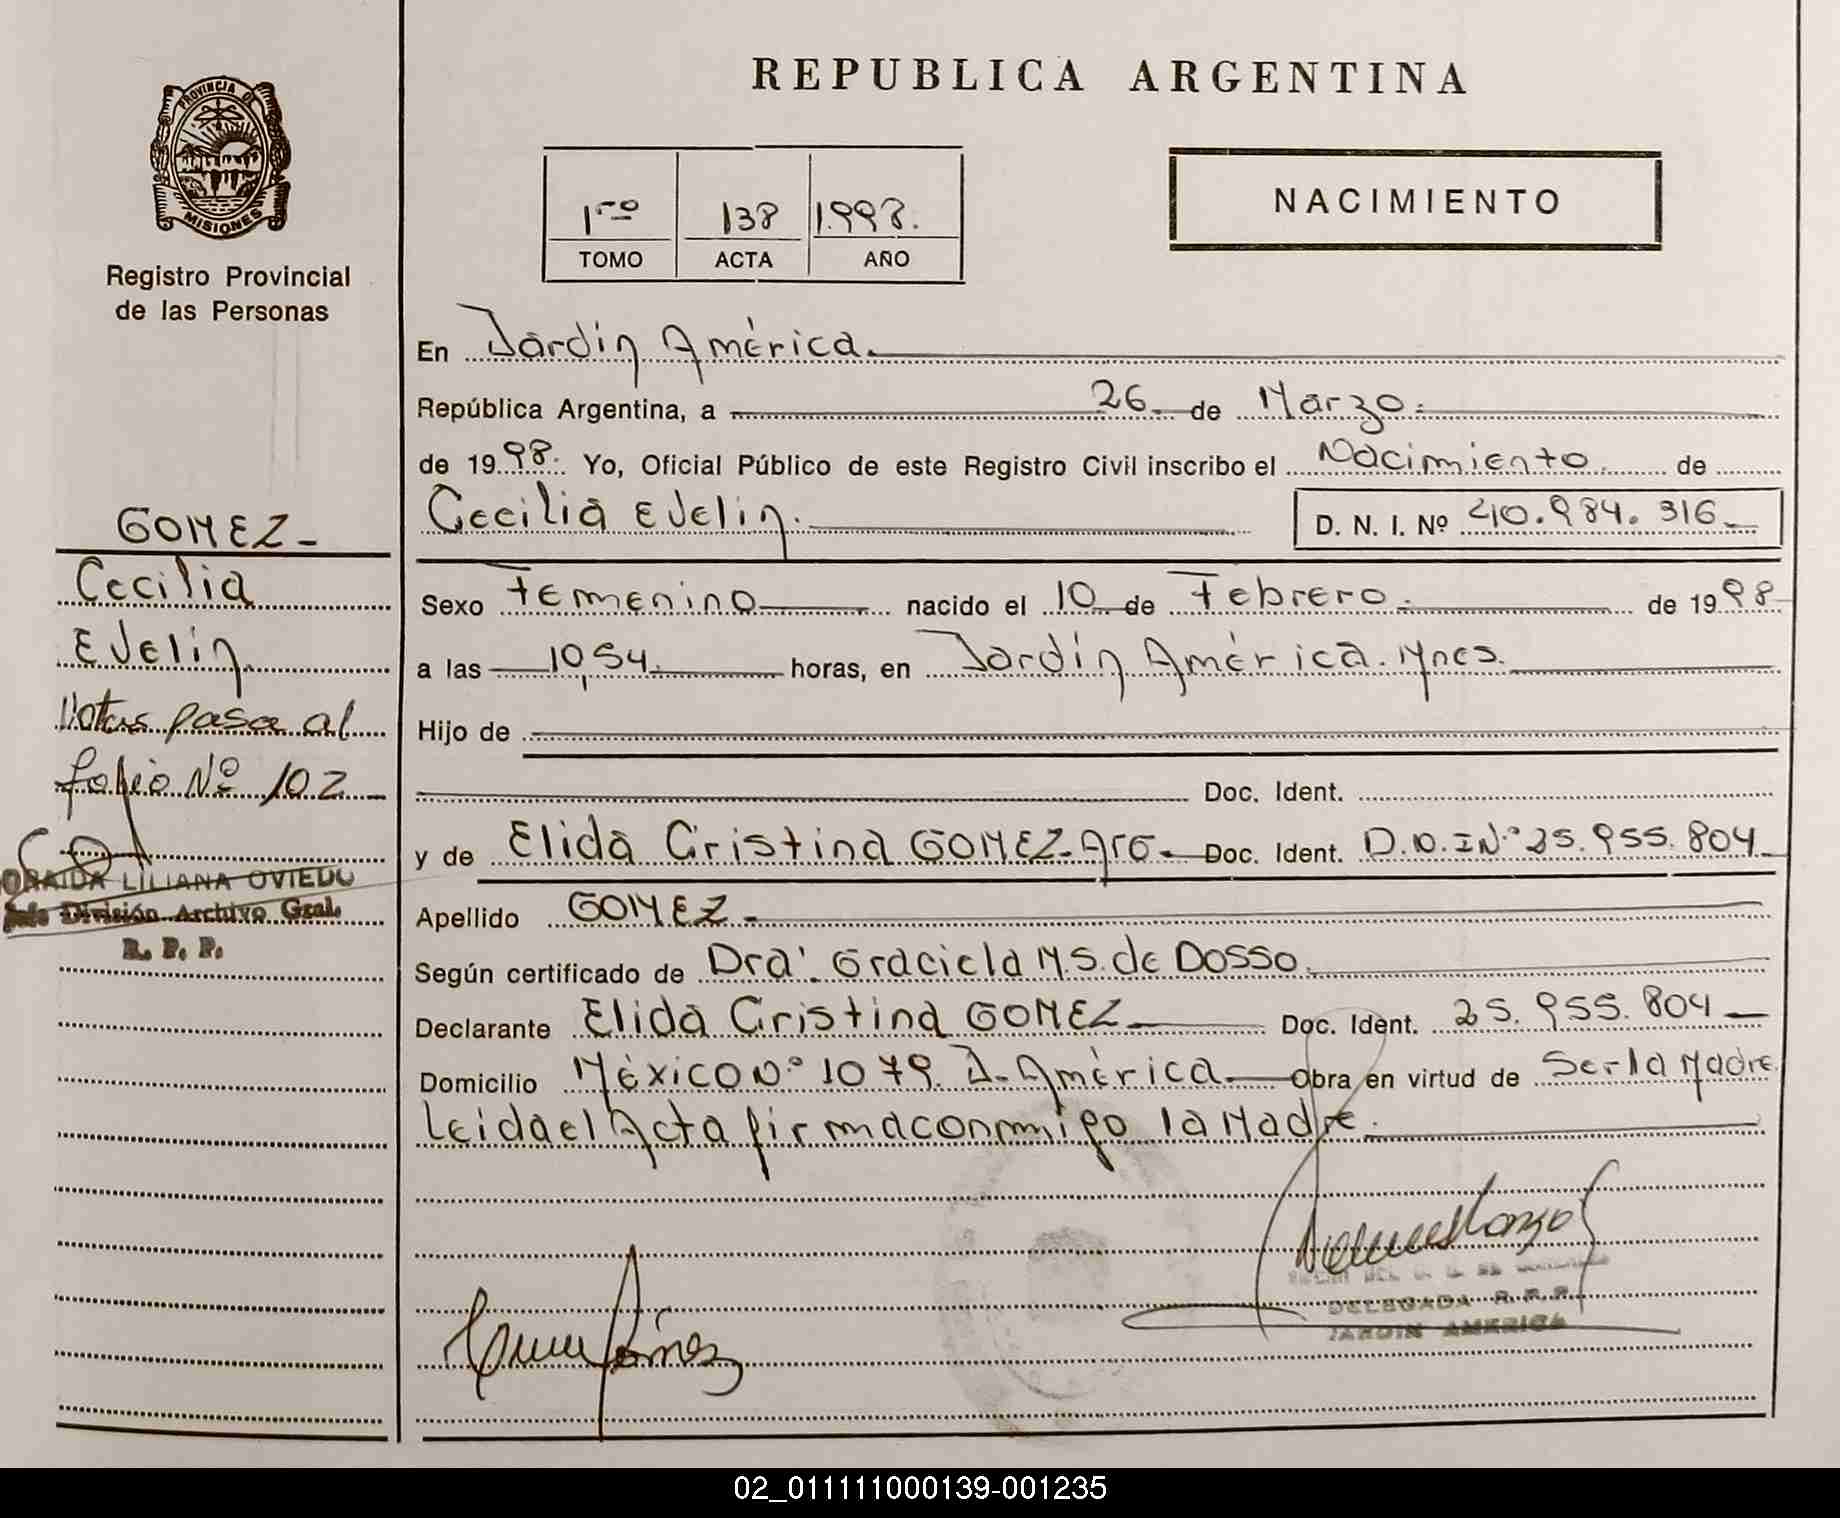 REPUBLICA ARGENTINA
PROVINCIA DE
MISIONES
Registro Provincial
de las Personas
1ro 138 1.998.
TOMO ACTA AÑO
NACIMIENTO
En Jardín América.
República Argentina, a 26 de Marzo.
de 1998. Yo, Oficial Público de este Registro Civil inscribo el Nacimiento de
Cecilia Evelin. D. N. I. Nº 40.984.316
Sexo Femenino nacido el 10 de Febrero. de 1998
a las 10,54. horas, en Jardín América. Mnes.
Hijo de
Doc. Ident.
y de Elida Cristina GOMEZ-Arg- Doc. Ident. D.N.I Nº 25.955.804
Apellido GOMEZ-
Según certificado de Dra. Graciela M.S. de Dosso.
Declarante Elida Cristina GOMEZ Doc. Ident. 25.955.804
Domicilio México Nº 1079. J. América. Obra en virtud de Ser la Madre
Leida el Acta firma conmigo la Madre.
GOMEZ-
Cecilia
Evelin.
Notas pasa al
folio Nº 102
LILIANA OVIEDO
Jefe División Archivo Gral.
R. P. P.
DELEGADA R.P.P.
JARDIN AMERICA
02_011111000139-001235